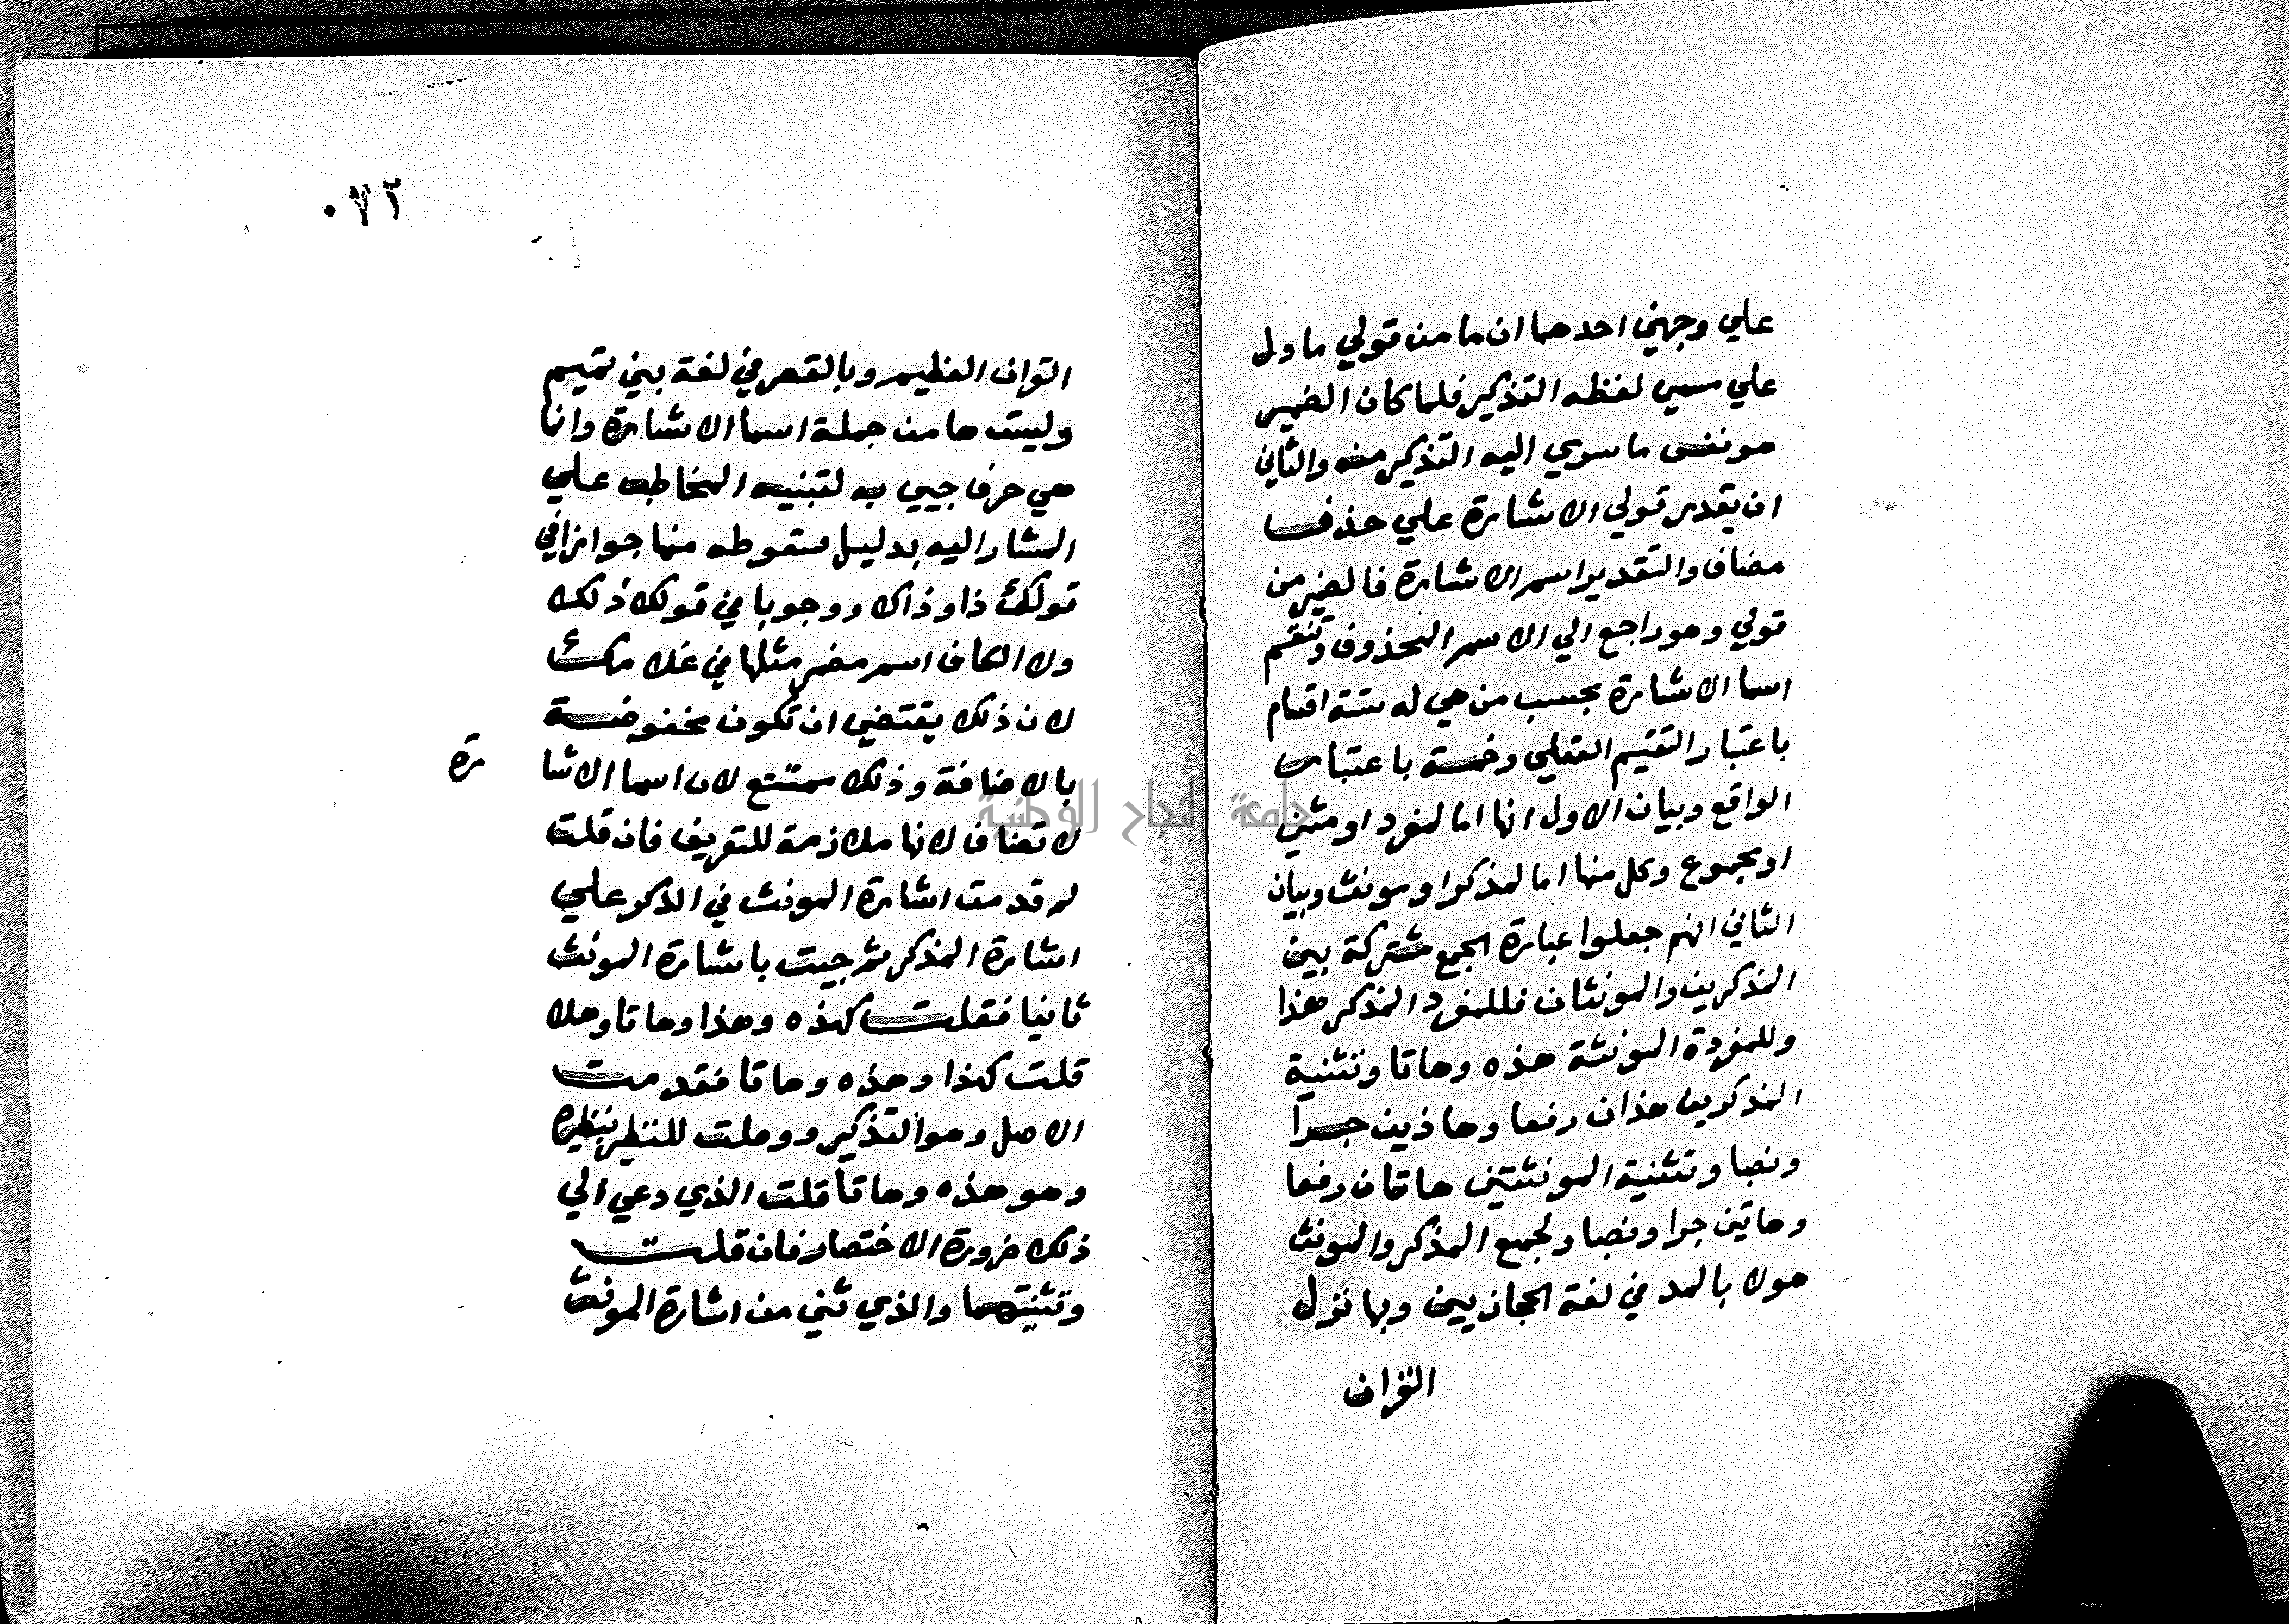 علي وجهين احدهما ان ما من قولي ما دل
علي مسمي لفظه التذكير فلما كان الضمير
هو نفس ما سري اليه التذكير منه والثاني
ان يقدر قولي الاشارة علي حذف
مضاف والتقدير اسم الاشارة فالضمير من
قولي وهو راجع الي الاسم المحذوف وتنقسم
اسما الاشارة بحسب من هي له ستة اقسام
باعتبار التقسيم العقلي وخمسة باعتبار
الواقع وبيان الاول انها اما لمفرد او مثني
او مجموع وكل منها اما لمذكر او مونث وبيان
الثاني انهم جعلوا عبارة الجمع مشتركة بين
المذكرين والمونثات فللمفرد المذكر هذا
وللمفردة المونثة هذه وهاتا وتثنية
المذكرين هذان رفعا وهاذين جرا
ونصبا وتثنية المونثتين هاتان رفعا
وهاتين جرا ونصبا ولجمع المذكر والمونث
هولا بالمد في لغة الحجازيين وبها نزل
القران
٠٧٢
القران العظيم وبالقصر في لغة بني تميم
وليست ها من جملة اسما الاشارة وانما
هي حرف جيي به لتنبيه المخاطب علي
المشار اليه بدليل سقوطه منها جوازا في
قولك ذا وذاك ووجوبا في قولك ذلك
ولا الكاف اسم مضمر مثلها في غلامك
لان ذلك يقتضي ان تكون مخفوضة
بالاضافة وذلك ممتنع لان اسما الاشا رة
لا تضاف لانها ملازمة للتعريف فان قلت
لم قدمت اشارة المونث في الذكر علي
اشارة المذكر ثم جيت باشارة المونث
ثانيا فقلت كهذه وهذا وهاتا وهلا
قلت كهذا وهذه وهاتا فقدمت
الاصل وهو التذكير ووصلت للنظير بنظيره
وهو هذه وهاتا قلت الذي دعي الي
ذلك ضرورة الاختصار فان قلت
وتثنيتهما والذي ثني من اشارة المونث
جامعة النجاح الوطنية